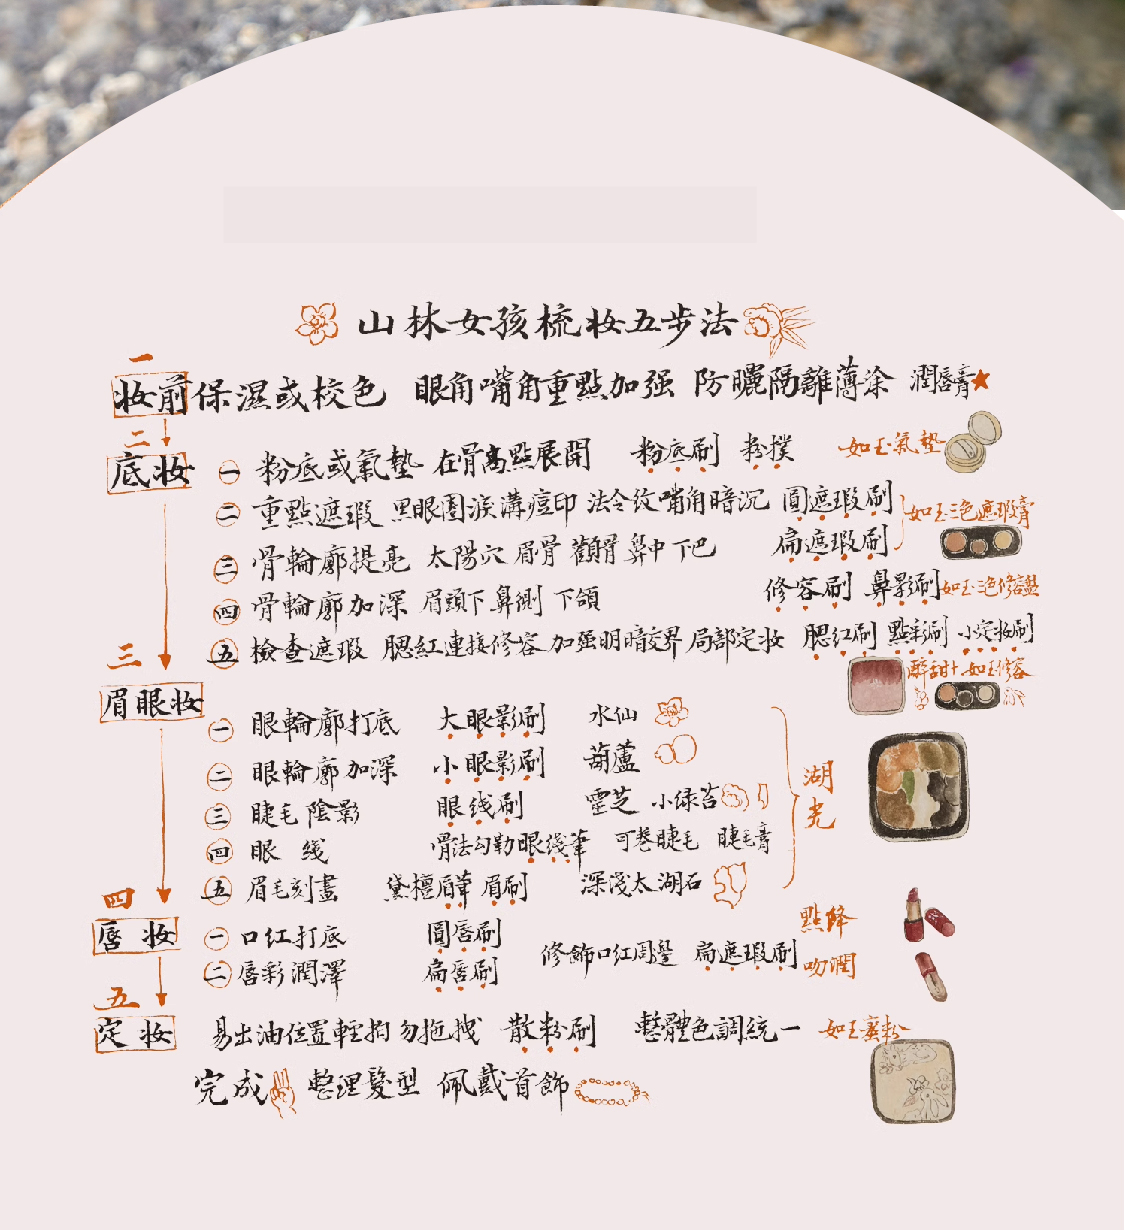 山林女孩梳妝五步法
一
妝前 保濕或校色 眼角嘴角重點加强 防曬隔離薄涂 潤唇膏
二
底妝
一 粉底或氣墊 在骨高點展開 粉底刷 粉撲 如玉氣墊
二 重點遮瑕 黑眼圈淚溝痘印 法令纹嘴角暗沉 圓遮瑕刷 如玉三色遮瑕膏
三 骨輪廓提亮 太陽穴 眉骨 顴骨 鼻中 下巴 扁遮瑕刷
四 骨輪廓加深 眉頭下 鼻側 下頜 修容刷 鼻影刷 如玉三色修容盤
五 檢查遮瑕 腮紅連接修容 加强明暗交界 局部定妝 腮红刷 點彩刷 小定妝刷
醉甜+如玉修容
三
眉眼妝
一 眼輪廓打底 大眼影刷 水仙
二 眼輪廓加深 小眼影刷 葫蘆
三 睫毛陰影 眼线刷 靈芝 小绿苔
湖光
四 眼线 骨法勾勒眼綫筆 可卷睫毛 睫毛膏
五 眉毛刻畫 黛檀眉筆 眉刷 深淺太湖石
四
唇妝
一 口红打底 圓唇刷 點降
二 唇彩潤澤 扁唇刷 修飾口红周邊 扁遮瑕刷 吻潤
五
定妝 易出油位置輕拍勿拖拽 散粉刷 整體色調統一 如玉蜜粉
完成 整理髮型 佩戴首飾